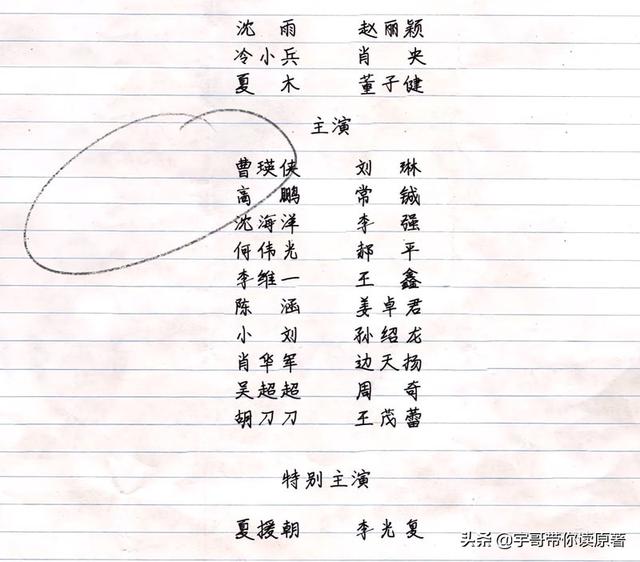 沈雨 赵丽颖
冷小兵 肖央
夏木 董子健
主演
曹瑛侠 刘琳
高鹏 常铖
沈海洋 李强
何伟光 郝平
李维一 王鑫
陈涵 姜卓君
小刘 孙绍龙
肖华军 边天扬
吴超超 周奇
胡刀刀 王茂蕾
特别主演
夏援朝 李光复
头条 @宇哥带你读原著